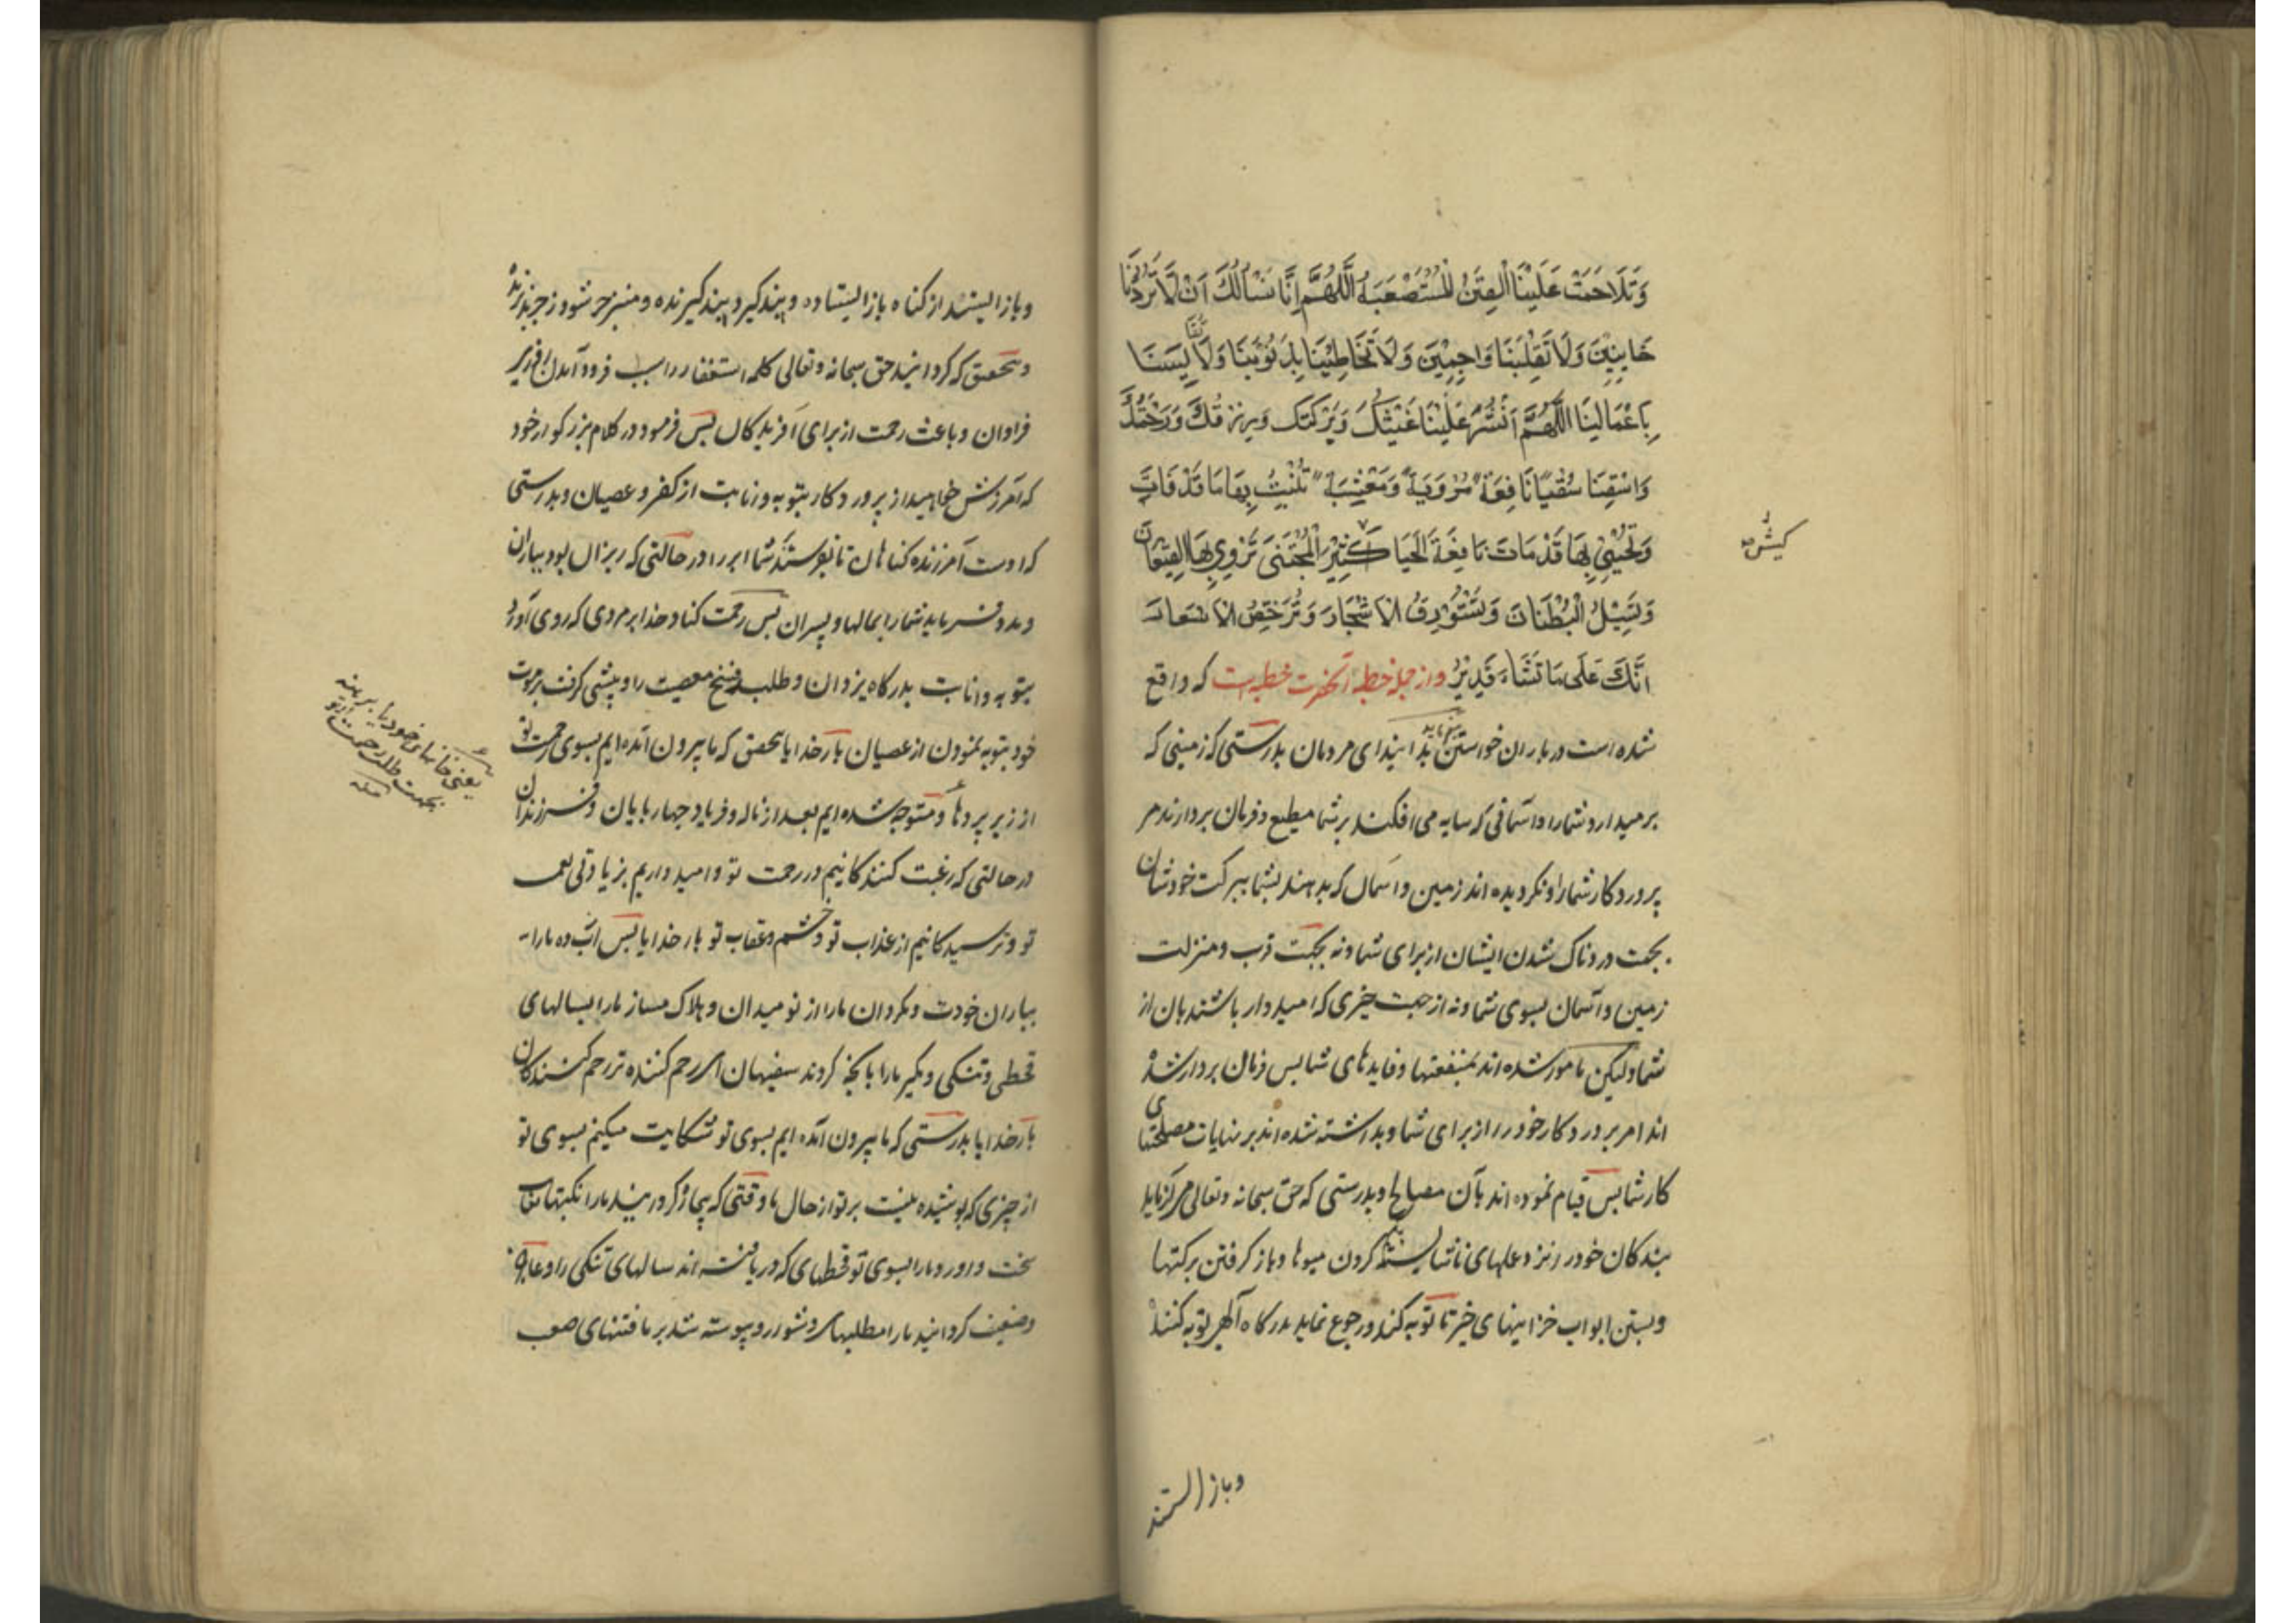 وَتَلَاحَمَتْ عَلَيْنَا الْفِتَنُ الْمُسْتَصْعَبَةُ اَللّٰهُمَّ اِنَّا نَسْأَلُكَ اَنْ لَا تَرُدَّنَا
خَايِبِيْنَ وَلَا تَقْلِبَنَا وَاجِمِيْنَ وَلَا تُخَاطِبَنَا بِذُنُوْبِنَا وَلَا تُقَايِسَنَا
بِاَعْمَالِنَا اللّٰهُمَّ اَنْشُرْ عَلَيْنَا غَيْثَكَ وَبَرَكَتَكَ وَرِزْقَكَ وَرَحْمَتَكَ
وَاسْقِنَا سُقْيًا نَافِعَةً مُرْوِيَةً وَمُعْشِبَةً تُنْبِتُ بِهَا مَا قَدْ فَاتَ
وَتُحْيِيْ بِهَا قَدْ مَاتَ نَافِعَةَ الْحَيَا كَثِيْرَ الْمُجْتَنٰى تُرْوِيْ بِهَا الْقِيْعَانَ
وَتُسِيْلُ الْبُطْنَانَ وَتَسْتَوْرِقُ الْاَشْجَارَ وَتُرَخِّصُ الْاَسْعَارَ
اِنَّكَ عَلٰى مَا تَشَاءُ قَدِيْرٌ و از جمله خطبه آنحضرت خطبه‌ایست که واقع
شده است در باران خواستن بدانید ای مردمان بدرستی که زمینی که
برمیدارد شما را و آسمانی که سایه می افکند بر شما مطیع و فرمان بردارند مر
پروردکار شما را و نکردیده اند زمین و آسمان که بدهند بشما ببرکت خودشان
بجهت دردناک شدن ایشان از برای شما و نه بجهت قرب و منزلت
زمین و آسمان بسوی شما و نه از جهت خیری که امیدوار باشند بان از
شما و لیکن مامور شده اند بمنفعتها و فایدهای شما پس فرمان بردار شده
اند امر پروردکار خود را از برای شما و بداشته شده اند بر نهایات مصلحتهای
کار شما پس قیام نموده اند بآن مصالح و بدرستی که حق سبحانه و تعالی
بندکان خود را نزد عملهای ناشایسته کردن میوها و باز کرفتن برکتها
و بستن ابواب خزاینهای خیر تا توبه کند و رجوع نماید بدرکاه آلهی توبه کننده
و باز ایستند
و باز ایستد از کناه باز ایستاده و پند کیرد پند کیرنده و منزجر شود زجر پذیرنده
و بتحقیق که کردانید حق سبحانه و تعالی کلمه استغفار را سبب فرود آمدن
فراوان و باعث رحمت از برای آفریدکان پس فرمود در کلام بزرکوار خود
که آمرزش خواهید از پروردکار بتوبه و انابت از کفر و عصیان و بدرستی
که اوست آمرزنده کناهان تا بفرستد شما ابر را در حالتی که ریزان بود بباران
و مدد فرماید شما را بمالها و پسران پس رحمت کناد خدا بر مردی که روی آورد
بتوبه و انابت بدرکاه یزدان و طلب فسخ معصیت را و پیشی کرفت بر موت
خود بتوبه نمودن از عصیان بار خدایا بتحقیق که ما بیرون آمده ایم بسوی رحمت تو
از زیر پردها و متوجه شده ایم بعد از ناله و فریاد چهارپایان و فرزندان
در حالتی که رغبت کنندکانیم در رحمت تو و امید داریم بزیادتی نعمت
تو و ترسیدکانیم از عذاب تو و خشم و عقاب تو بار خدایا پس آب ده ما را
بباران خودت و مکردان ما را از نومیدان و هلاک مساز ما را بسالهای
قحطی و تنکی و مکیر ما را بآنچه کردند سفیهان ای رحم کننده تر رحم کنندکان
بار خدایا بدرستی که ما بیرون آمده ایم بسوی تو شکایت میکنیم بسوی تو
از چیزی که پوشیده نیست بر تو از حال ما وقتی که بیچاره کردانید ما را تنکیتهای
سخت و آورد ما را بسوی تو قحطهای که دریافته اند سالهای تنکی را و عاجز
و ضعیف کردانید ما را مطلبهای دشوار و پیوسته شد بر ما فتنهای صعب
یعنی خانهای خود
بجهت طلب رحمت از تو